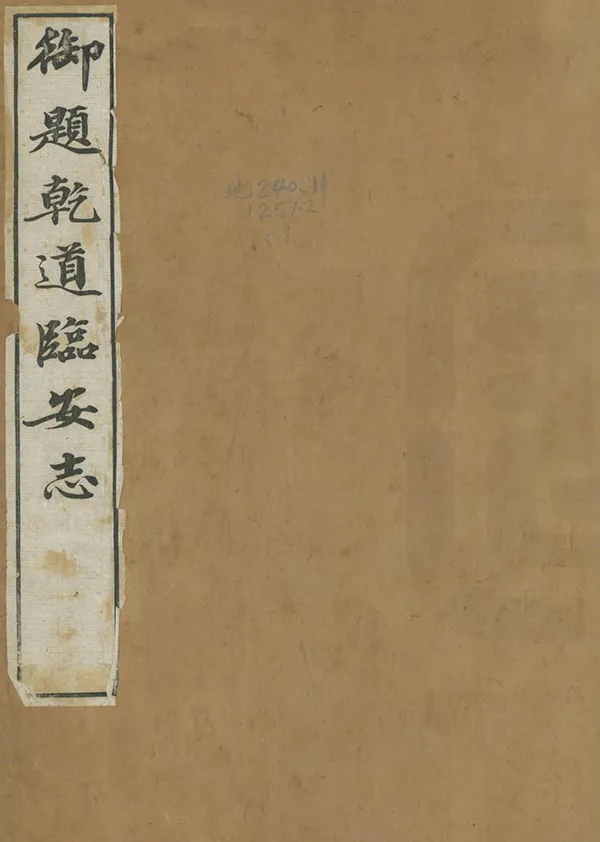 御題乾道臨安志
地240.11
1257.2